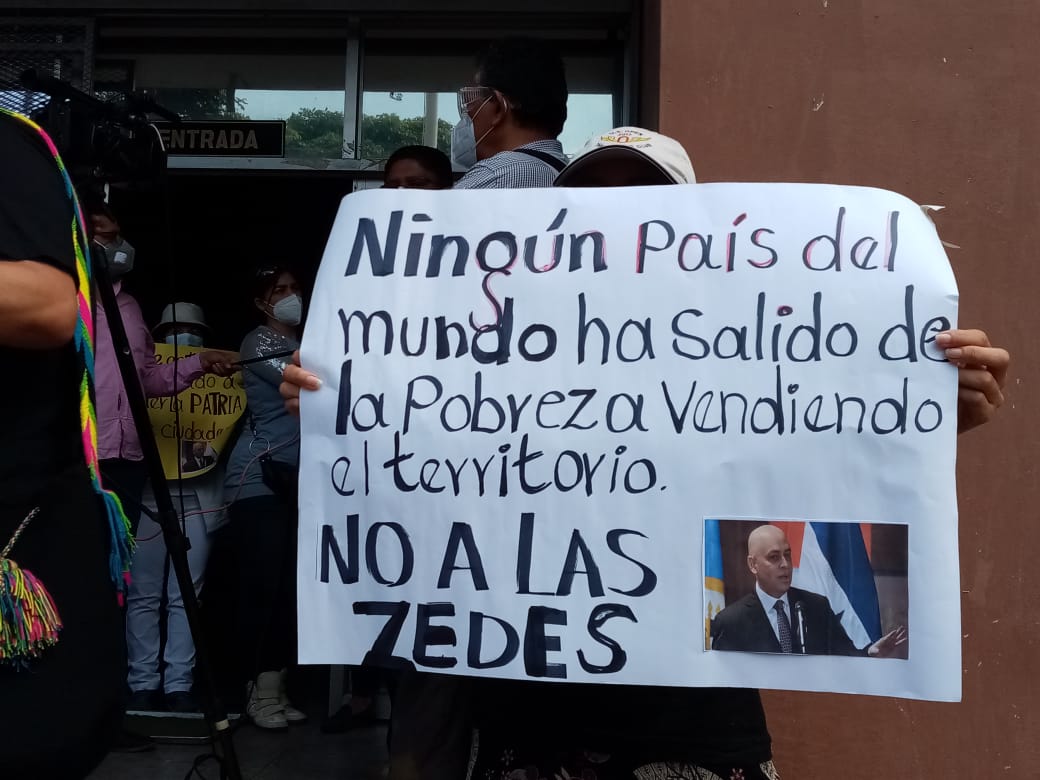 ENTRADA
Ningún País del
mundo ha salido de
la Pobreza Vendiendo
el territorio.
NO A LAS
ZEDES
PATRIA